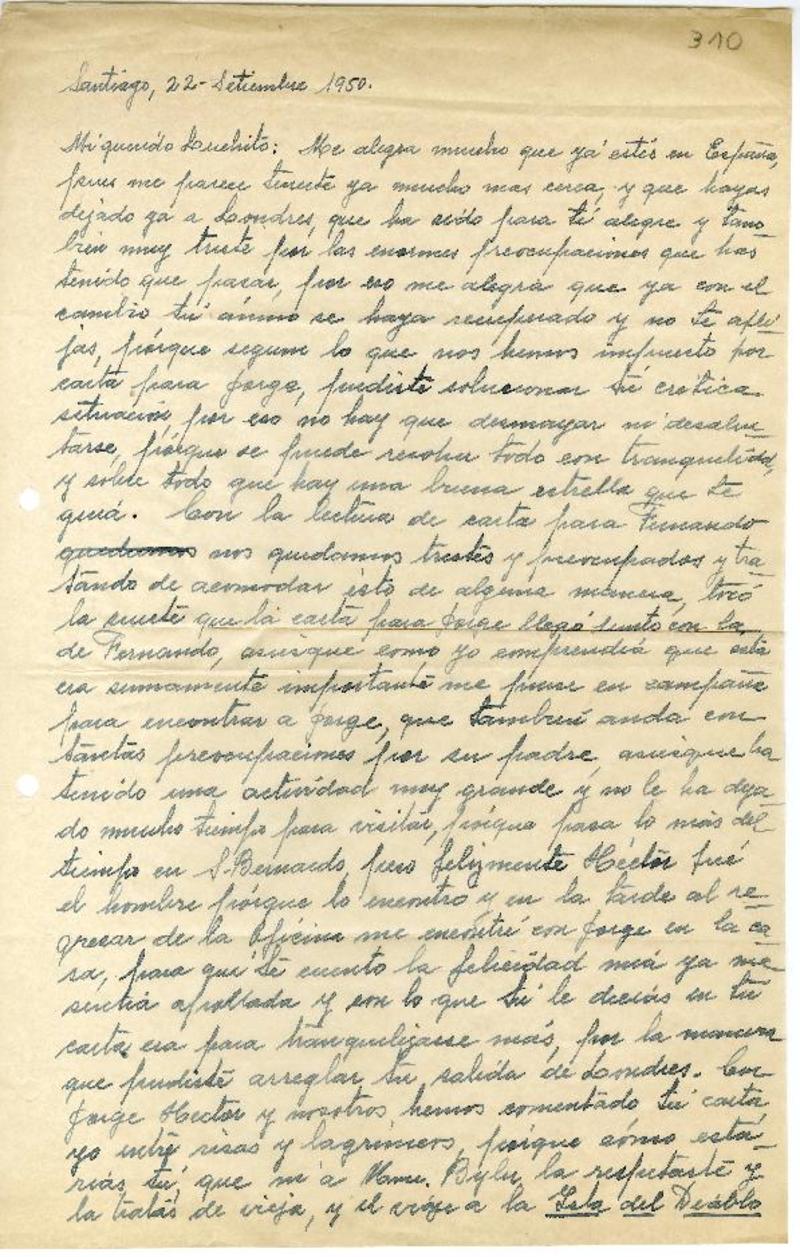 310
Santiago, 22-Setiembre 1950.
Mi querido Luchito: Me alegra mucho que ya estés en España,
pues me parece tenerte ya mucho mas cerca, y que hayas
dejado ya a Loondres, que ha sido para tí alegre y tam-
bien muy triste por las enormes preocupaciones que has
tenido que pasar, por eso me alegra que ya con el
cambio tu ánimo se haya recuperado y no te afli-
jas, pórque segun lo que nos hemos impuesto por
carta para Jorge, pudiste solucionar tu crítica
situación, por eso no hay que desmayar ni desalen-
tarse, pórque se puede resolver todo con tranquilidad,
y sobre todo que hay una buena estrella que te
guiá. Con la lectura de carta para Fernando
quedamos nos quedamos tristes y preocupados y tra-
tando de acomodar ésto de alguna manera, tocó
la suerte que la carta para Jorge llegó junto con la
de Fernando, asíesque como yo comprendiá que esta
era sumamente importante me puse en campaña
para encontrar a Jorge, que tambien anda con
tantas preocupaciones por su padre, asiesque ha
tenido una actividad muy grande y no le ha deja-
do mucho tiempo para visitar, pórque pasa lo más del
tiempo en S. Bernardo, pero felizmente Héctor fué
el hombre pórque lo encontro y en la tarde al re-
gresar de la Oficina me encontré con Jorge en la ca-
sa, para qué te cuento la felicidad miá ya me
sentiá apollada y con lo que tú le deciás en tu
carta era para tranquilizarse más, por la manera
que pudiste arreglar tu salida de Loondres. Con
Jorge Hector y nosotros hemos comentado tu carta,
yo entre risas y lagrimeos, pórque cómo esta-
riás tú, que ni a Mame. Byly la respetaste y
la tratas de vieja, y el viaje a la Isla del Diablo